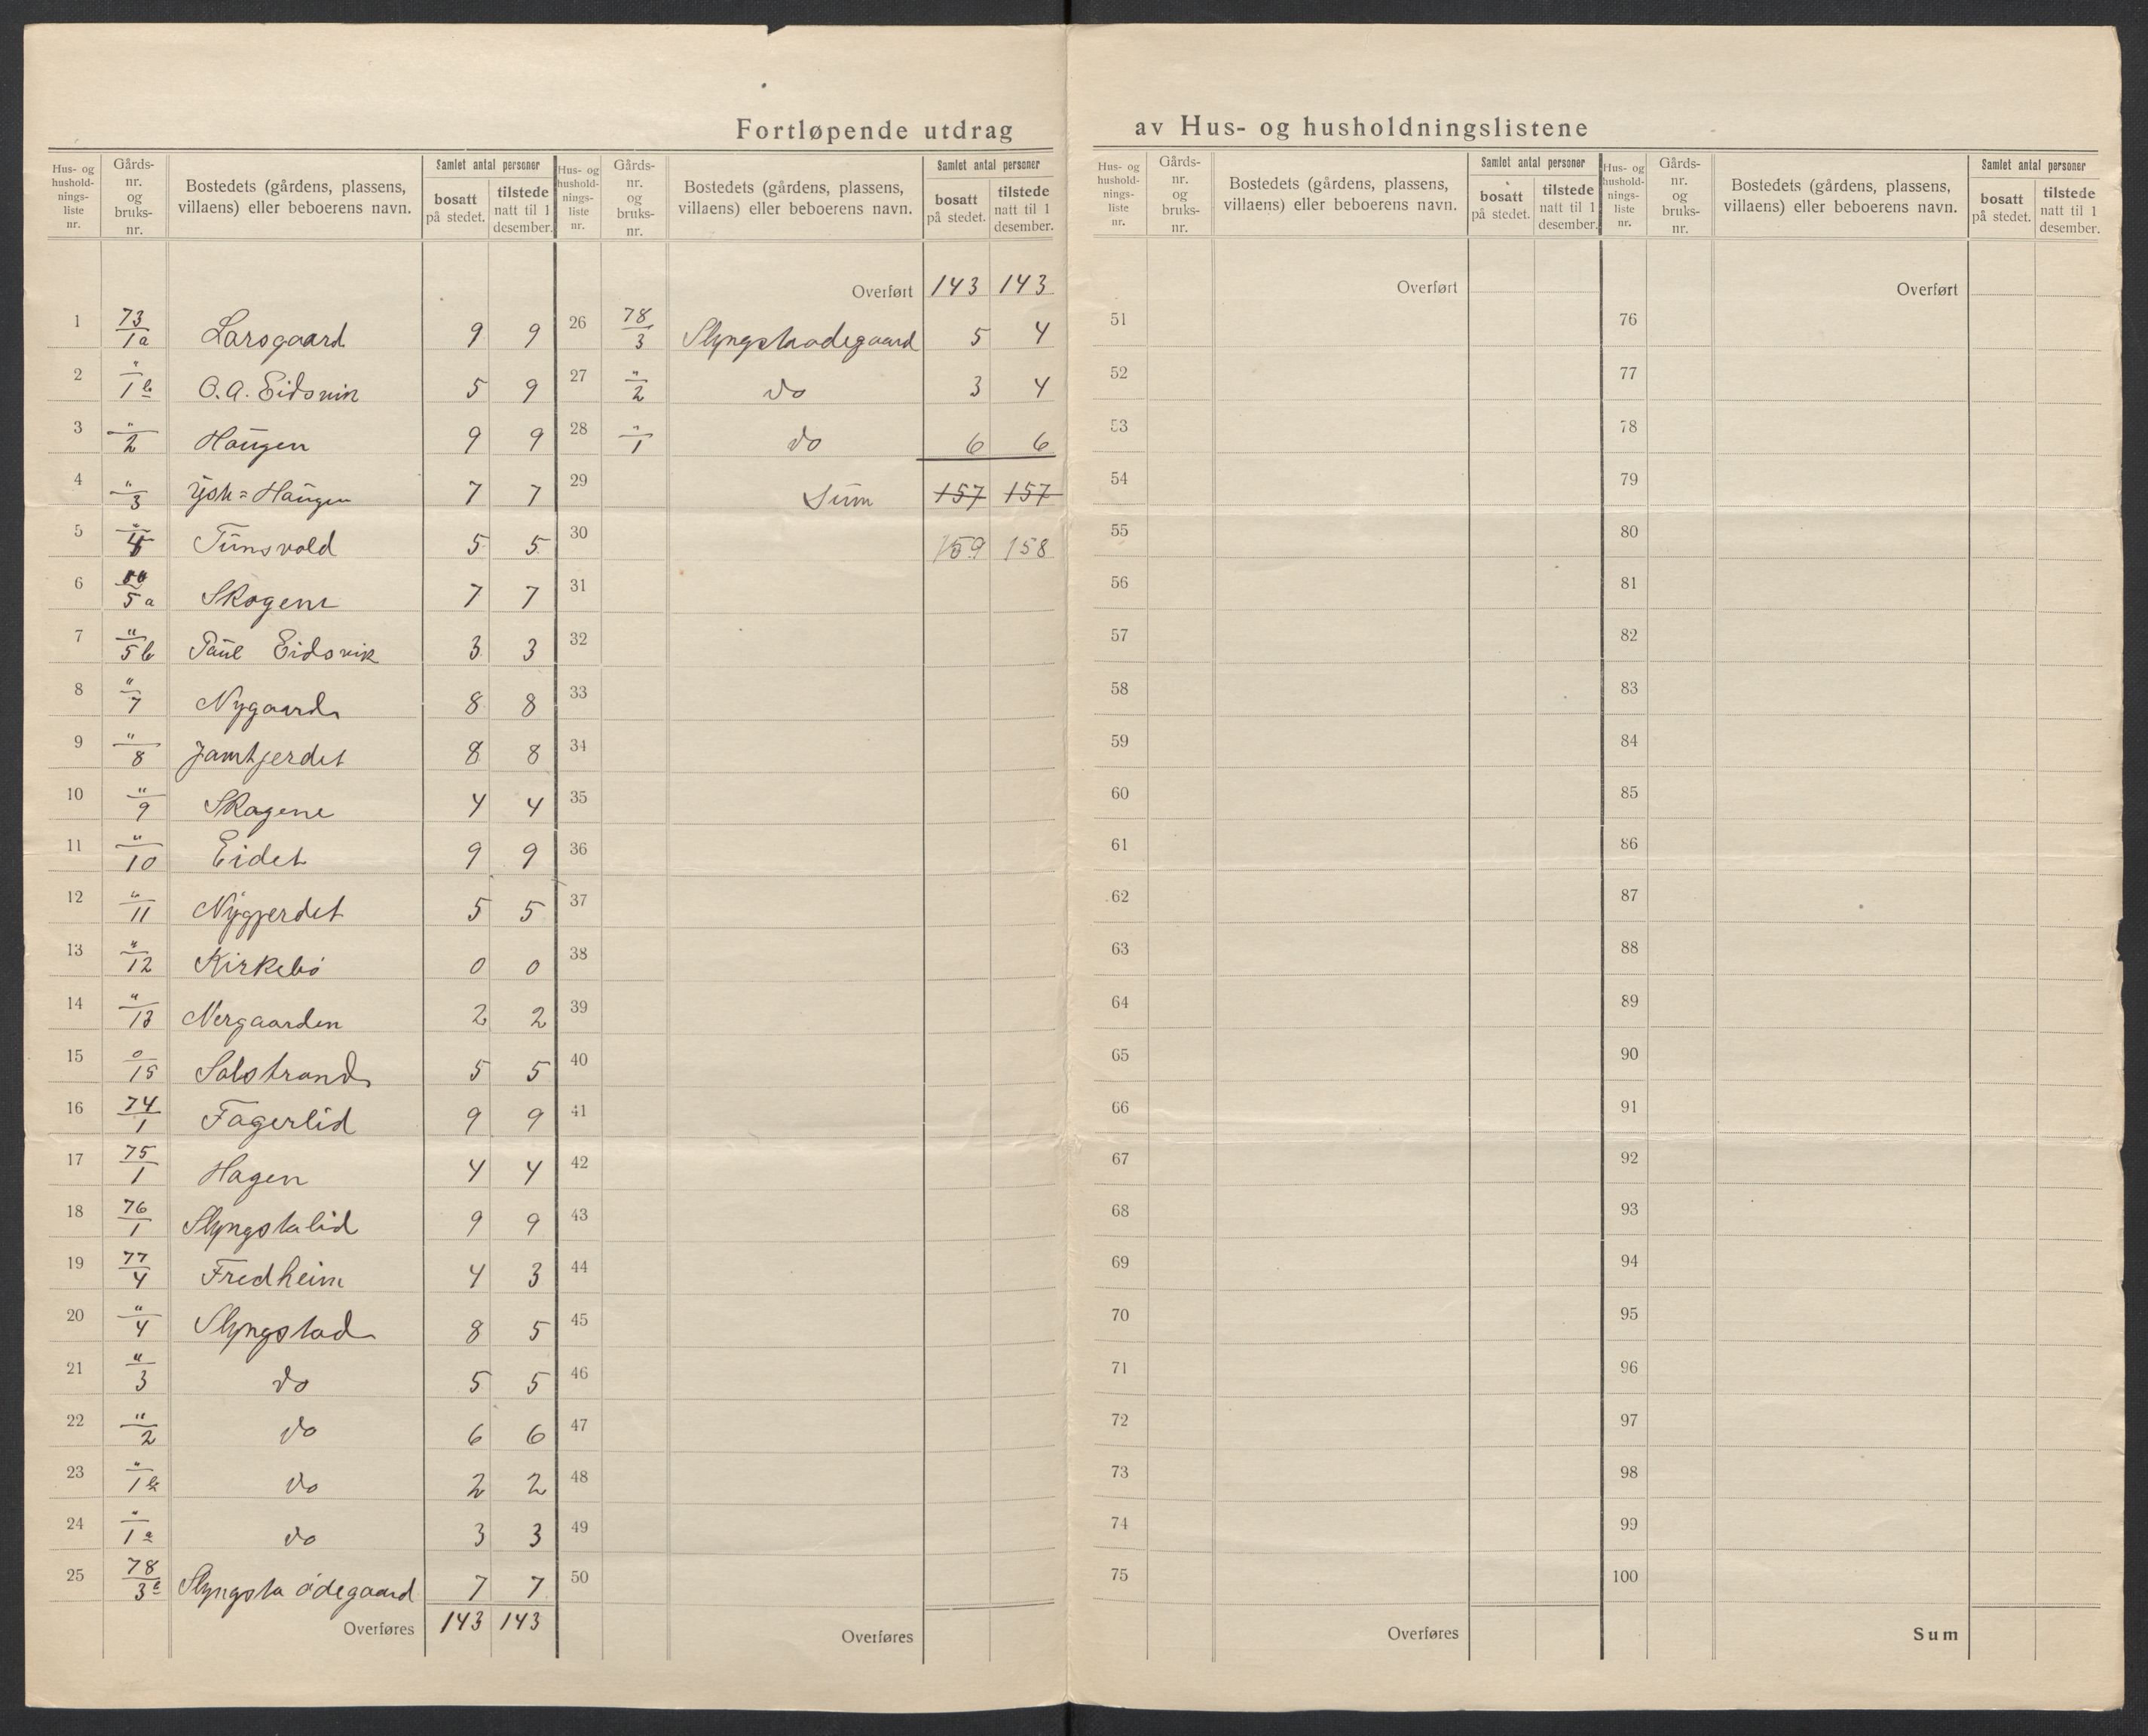 Fortløpende utdrag av Hus- og husholdningslistene
Hus- og hushold-nings-liste nr. Gårds-nr. og bruks-nr. Bostedets (gårdens, plassens, villaens) eller beboerens navn. Samlet antal personer bosatt på stedet. tilstede natt til 1 desember.
1 73/1a Larsgaard 9 9
2 "/1b O.A. Eidsvik 5 9
3 "/2 Haugen 9 9
4 "/3 Haugen 7 7
5 "/4 Tunsvold 5 5
6 "/5a Skogene 7 7
7 "/5b Paul Eidsvik 3 3
8 "/7 Nygaard 8 8
9 "/8 Jamtjerdet 8 8
10 "/9 Skogene 4 4
11 "/10 Eidet 9 9
12 "/11 Nygjerdet 5 5
13 "/12 Kirkebö 0 0
14 "/13 Nergaarden 2 2
15 "/15 Solstrand 5 5
16 74/1 Fagerlid 9 9
17 75/1 Hagen 4 4
18 76/1 Slyngstalid 9 9
19 77/4 Fredheim 4 3
20 "/4 Slyngstad 8 5
21 "/3 do 5 5
22 "/2 do 6 6
23 "/1b do 2 2
24 "/1a do 3 3
25 78/3b Slyngsta ödegaard 7 7
Overføres 143 143
Hus- og hushold-nings-liste nr. Gårds-nr. og bruks-nr. Bostedets (gårdens, plassens, villaens) eller beboerens navn. Samlet antal personer bosatt på stedet. tilstede natt til 1 desember.
Overført 143 143
26 78/3 Slyngstaødegaard 5 4
27 "/2 do 3 4
28 "/1 do 6 6
29 Sum 157 157
30 159 158
31
32
33
34
35
36
37
38
39
40
41
42
43
44
45
46
47
48
49
50
Overføres
Hus- og hushold-nings-liste nr. Gårds-nr. og bruks-nr. Bostedets (gårdens, plassens, villaens) eller beboerens navn. Samlet antal personer bosatt på stedet. tilstede natt til 1 desember.
Overført
51
52
53
54
55
56
57
58
59
60
61
62
63
64
65
66
67
68
69
70
71
72
73
74
75
Overføres
Hus- og hushold-nings-liste nr. Gårds-nr. og bruks-nr. Bostedets (gårdens, plassens, villaens) eller beboerens navn. Samlet antal personer bosatt på stedet. tilstede natt til 1 desember.
Overført
76
77
78
79
80
81
82
83
84
85
86
87
88
89
90
91
92
93
94
95
96
97
98
99
100
Sum